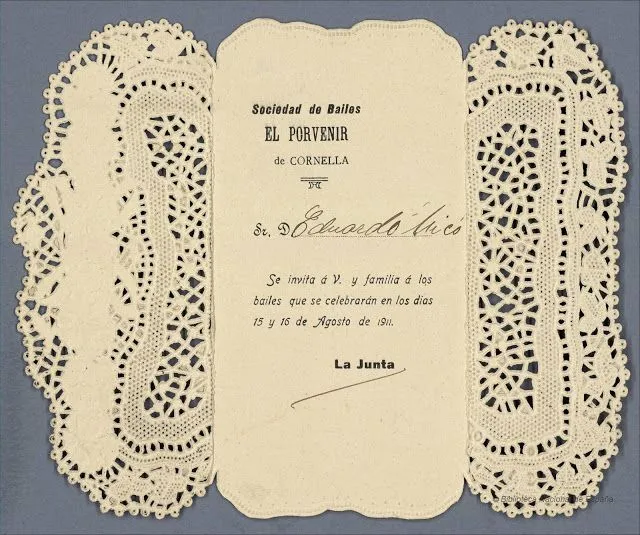 Sociedad de Bailes
EL PORVENIR
de CORNELLA
Sr. D Eduardo Micó
Se invita á V. y familia á los
bailes que se celebrarán en los dias
15 y 16 de Agosto de 1911.
La Junta
© Biblioteca Nacional de España